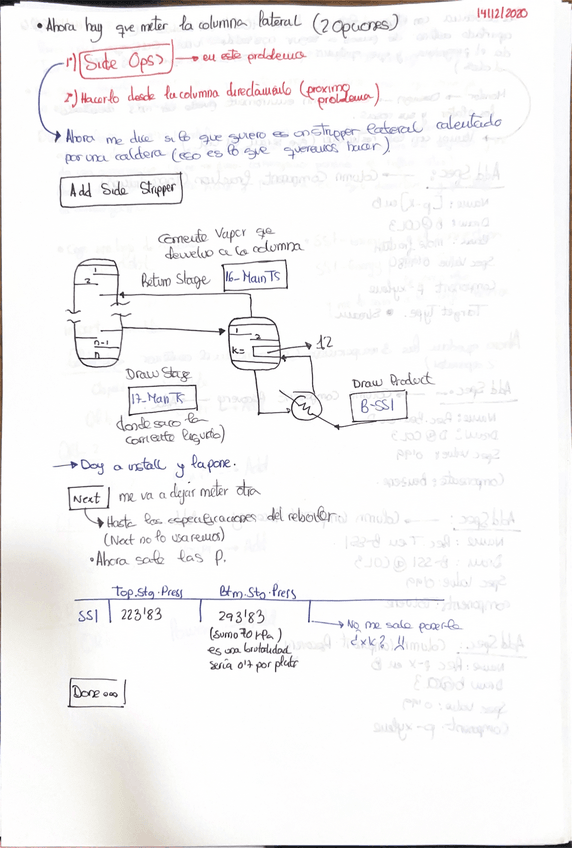 14|12/2020
• Ahora hay que meter la columna lateral (2 Opciones)
1º) Side Ops> → en este problema
2º) Hacerlo desde la columna directamente (proximo problema)
→ Ahora me dice si lo que quiero es un stripper lateral calentado
por una caldera (eso es lo que queremos hacer).
Add Side Stripper
corriente Vapor que
devuelvo a la columna
Return Stage 16-Main TS
1
2
n-1
n
1
2
k=
12
Draw Stage
17-Main TS
donde saco la
corriente líquido)
Draw Product
B-SS1
→ Doy a install y la pone.
Next me va a dejar meter otra
→ Hasta las especificaciones del reboiler.
(Next no lo usaremos)
• Ahora sale las P.
Top.Stg.Press Btm.Stg.Press
SS1 223'83 293'83 → No me sale ponerla
(sumo 70 kPa)
es una brutalidad
sería 0'7 por plato
Done...